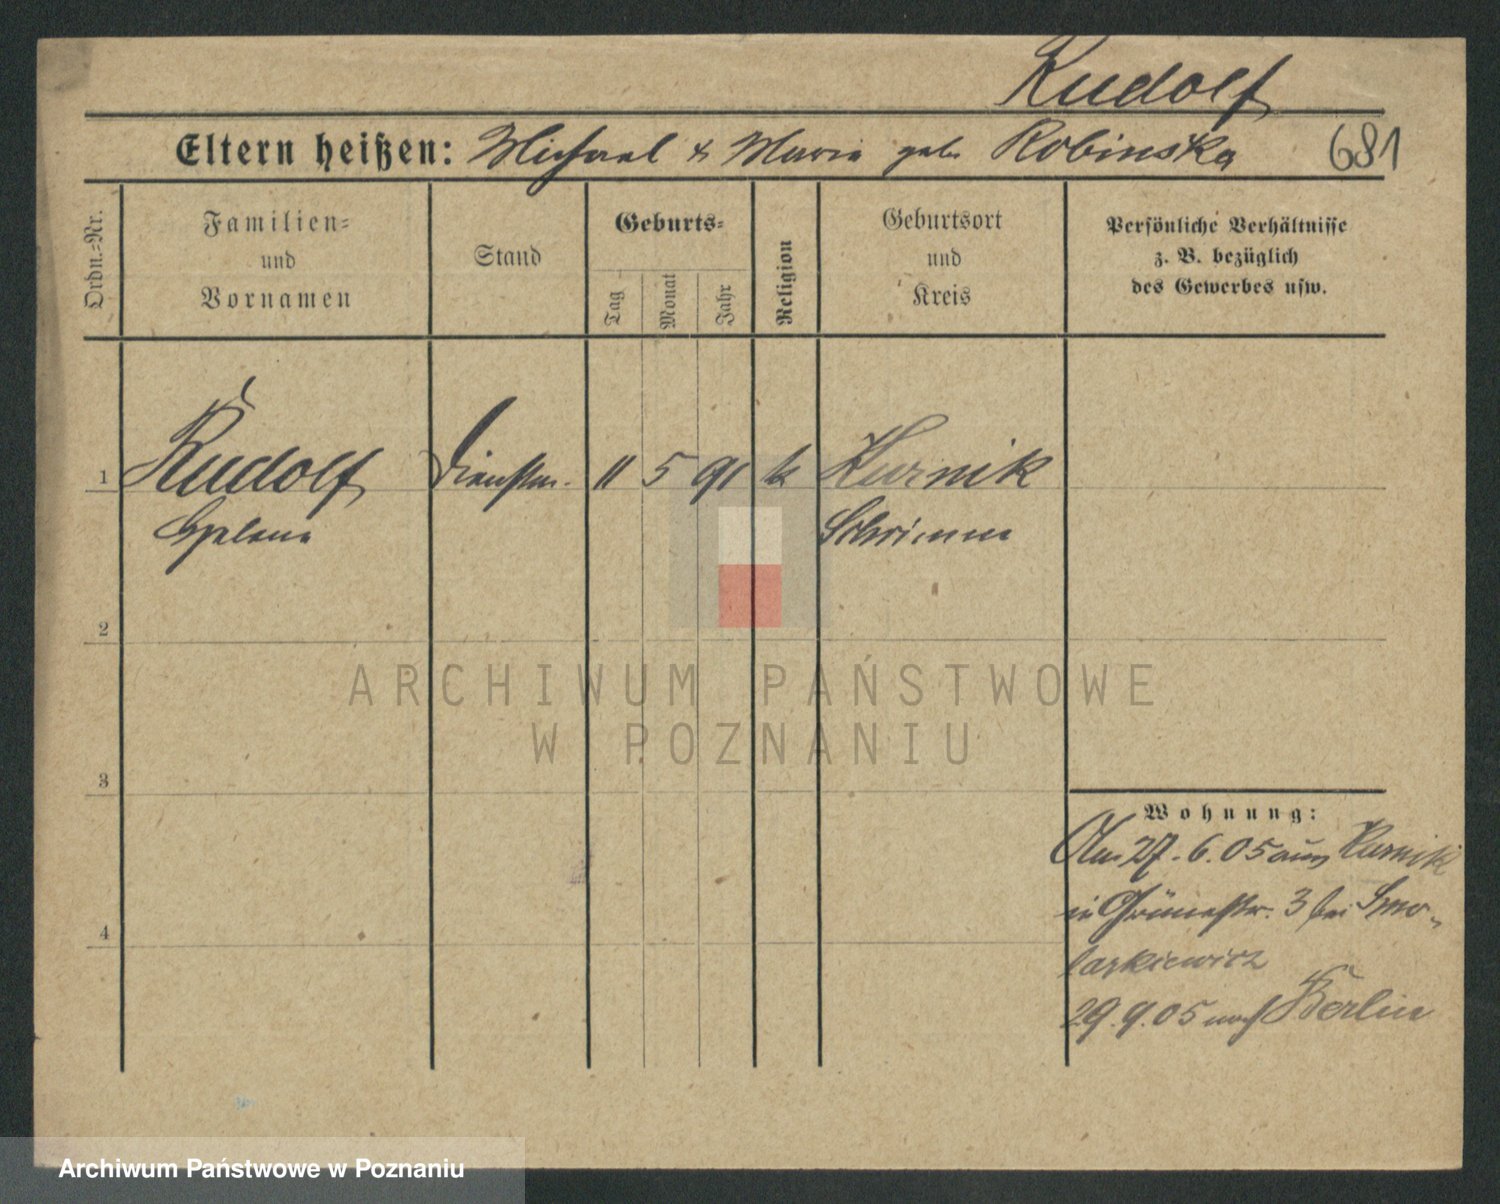 Rudolf
Eltern heißen: Michael & Marie geb. Robinska 681
Ordn.-Nr.
Familien-
und
Vornamen
Stand
Geburts-
Tag
Monat
Jahr
Religion
Geburtsort
und
Kreis
Persönliche Verhältnisse
z. B. bezüglich
des Gewerbes usw.
1 Rudolf Dienstm. 11 5 91 k Kurnik
Helene Schrimm
2
3
4
Wohnung:
Am 27.6.05 aus Kurnik
in Grünestr. 3 bei Smo-
larkiewicz
29.9.05 nach Berlin
ARCHIWUM PAŃSTWOWE
W POZNANIU
Archiwum Państwowe w Poznaniu